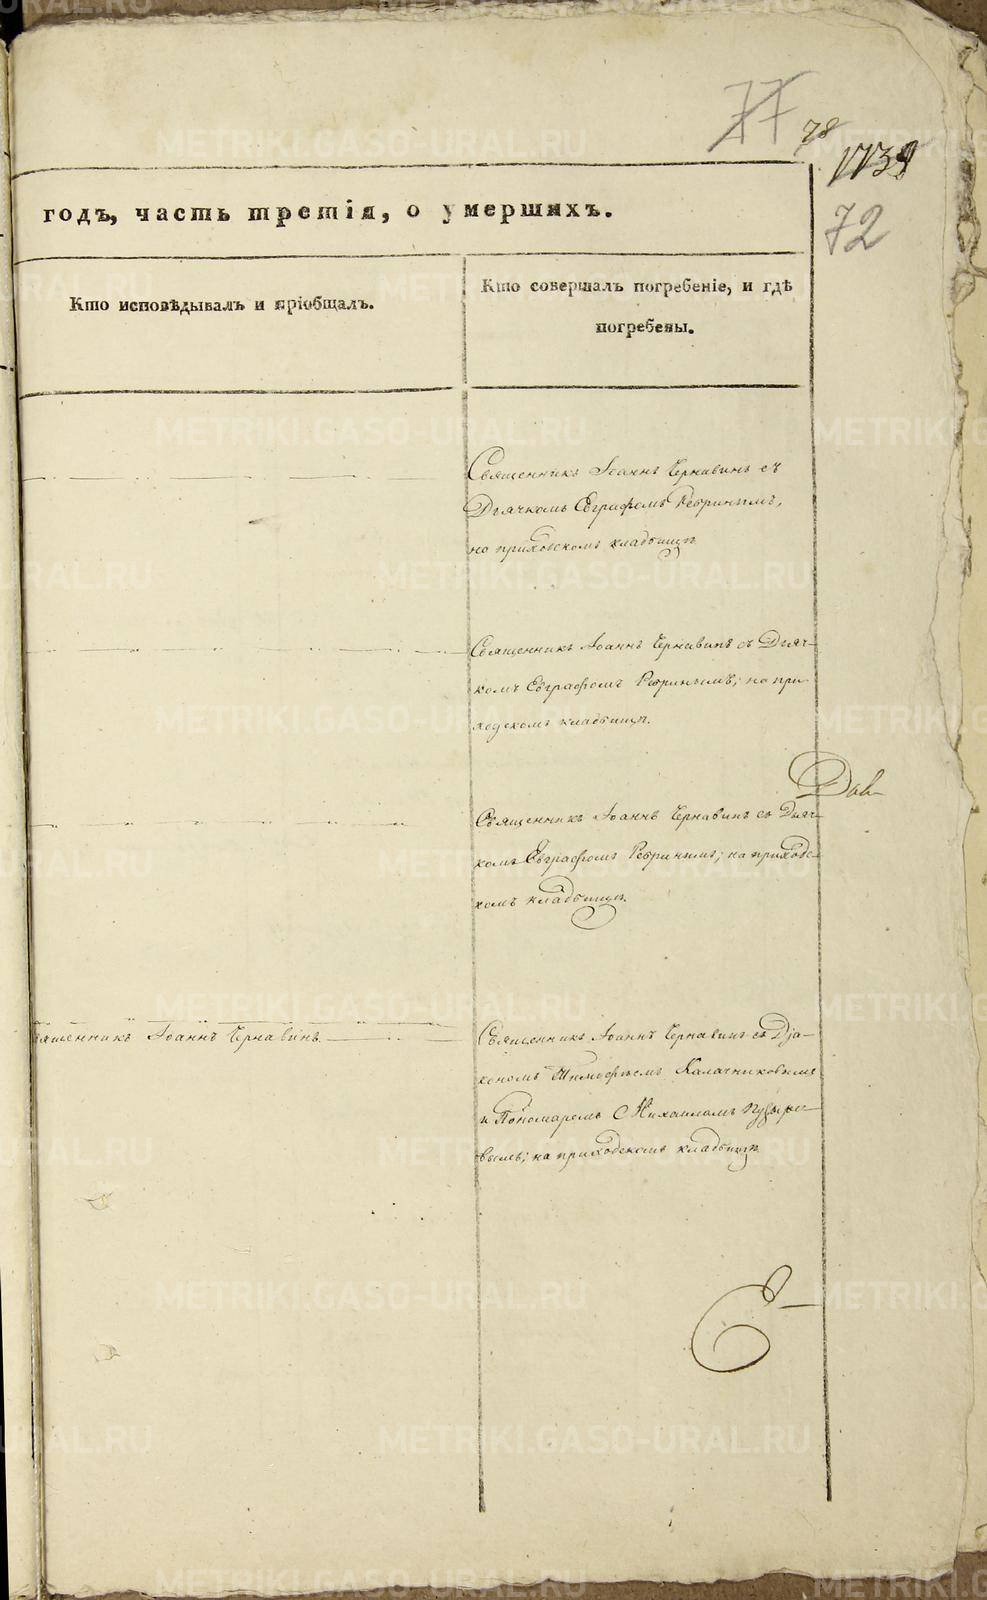 77
78
1138
72
годъ, часть третія, о умершихъ.
Кто исповѣдывалъ и пріобщалъ.
Кто совершалъ погребеніе, и гдѣ
погребены.
Священникъ Іоаннъ Чернавинъ съ
Дьячкомъ Евграфомъ Ребринымъ,
на приходскомъ кладбищѣ
Священникъ Іоаннъ Чернавинъ съ Дьяч-
комъ Евграфомъ Ребринымъ; на при-
ходскомъ кладбищѣ.
Дав-
Священникъ Іоаннъ Чернавинъ съ Дьяч-
комъ Евграфомъ Ребринымъ; на приходс-
комъ кладбищѣ.
Священникъ Іоаннъ Чернавинъ
Священникъ Іоаннъ Чернавинъ съ Діа-
кономъ Тимофѣемъ Калачниковымъ
и Пономаремъ Михаиломъ Пузыре-
вымъ; на приходскомъ кладбищѣ
METRIKI.GASO-URAL.RU